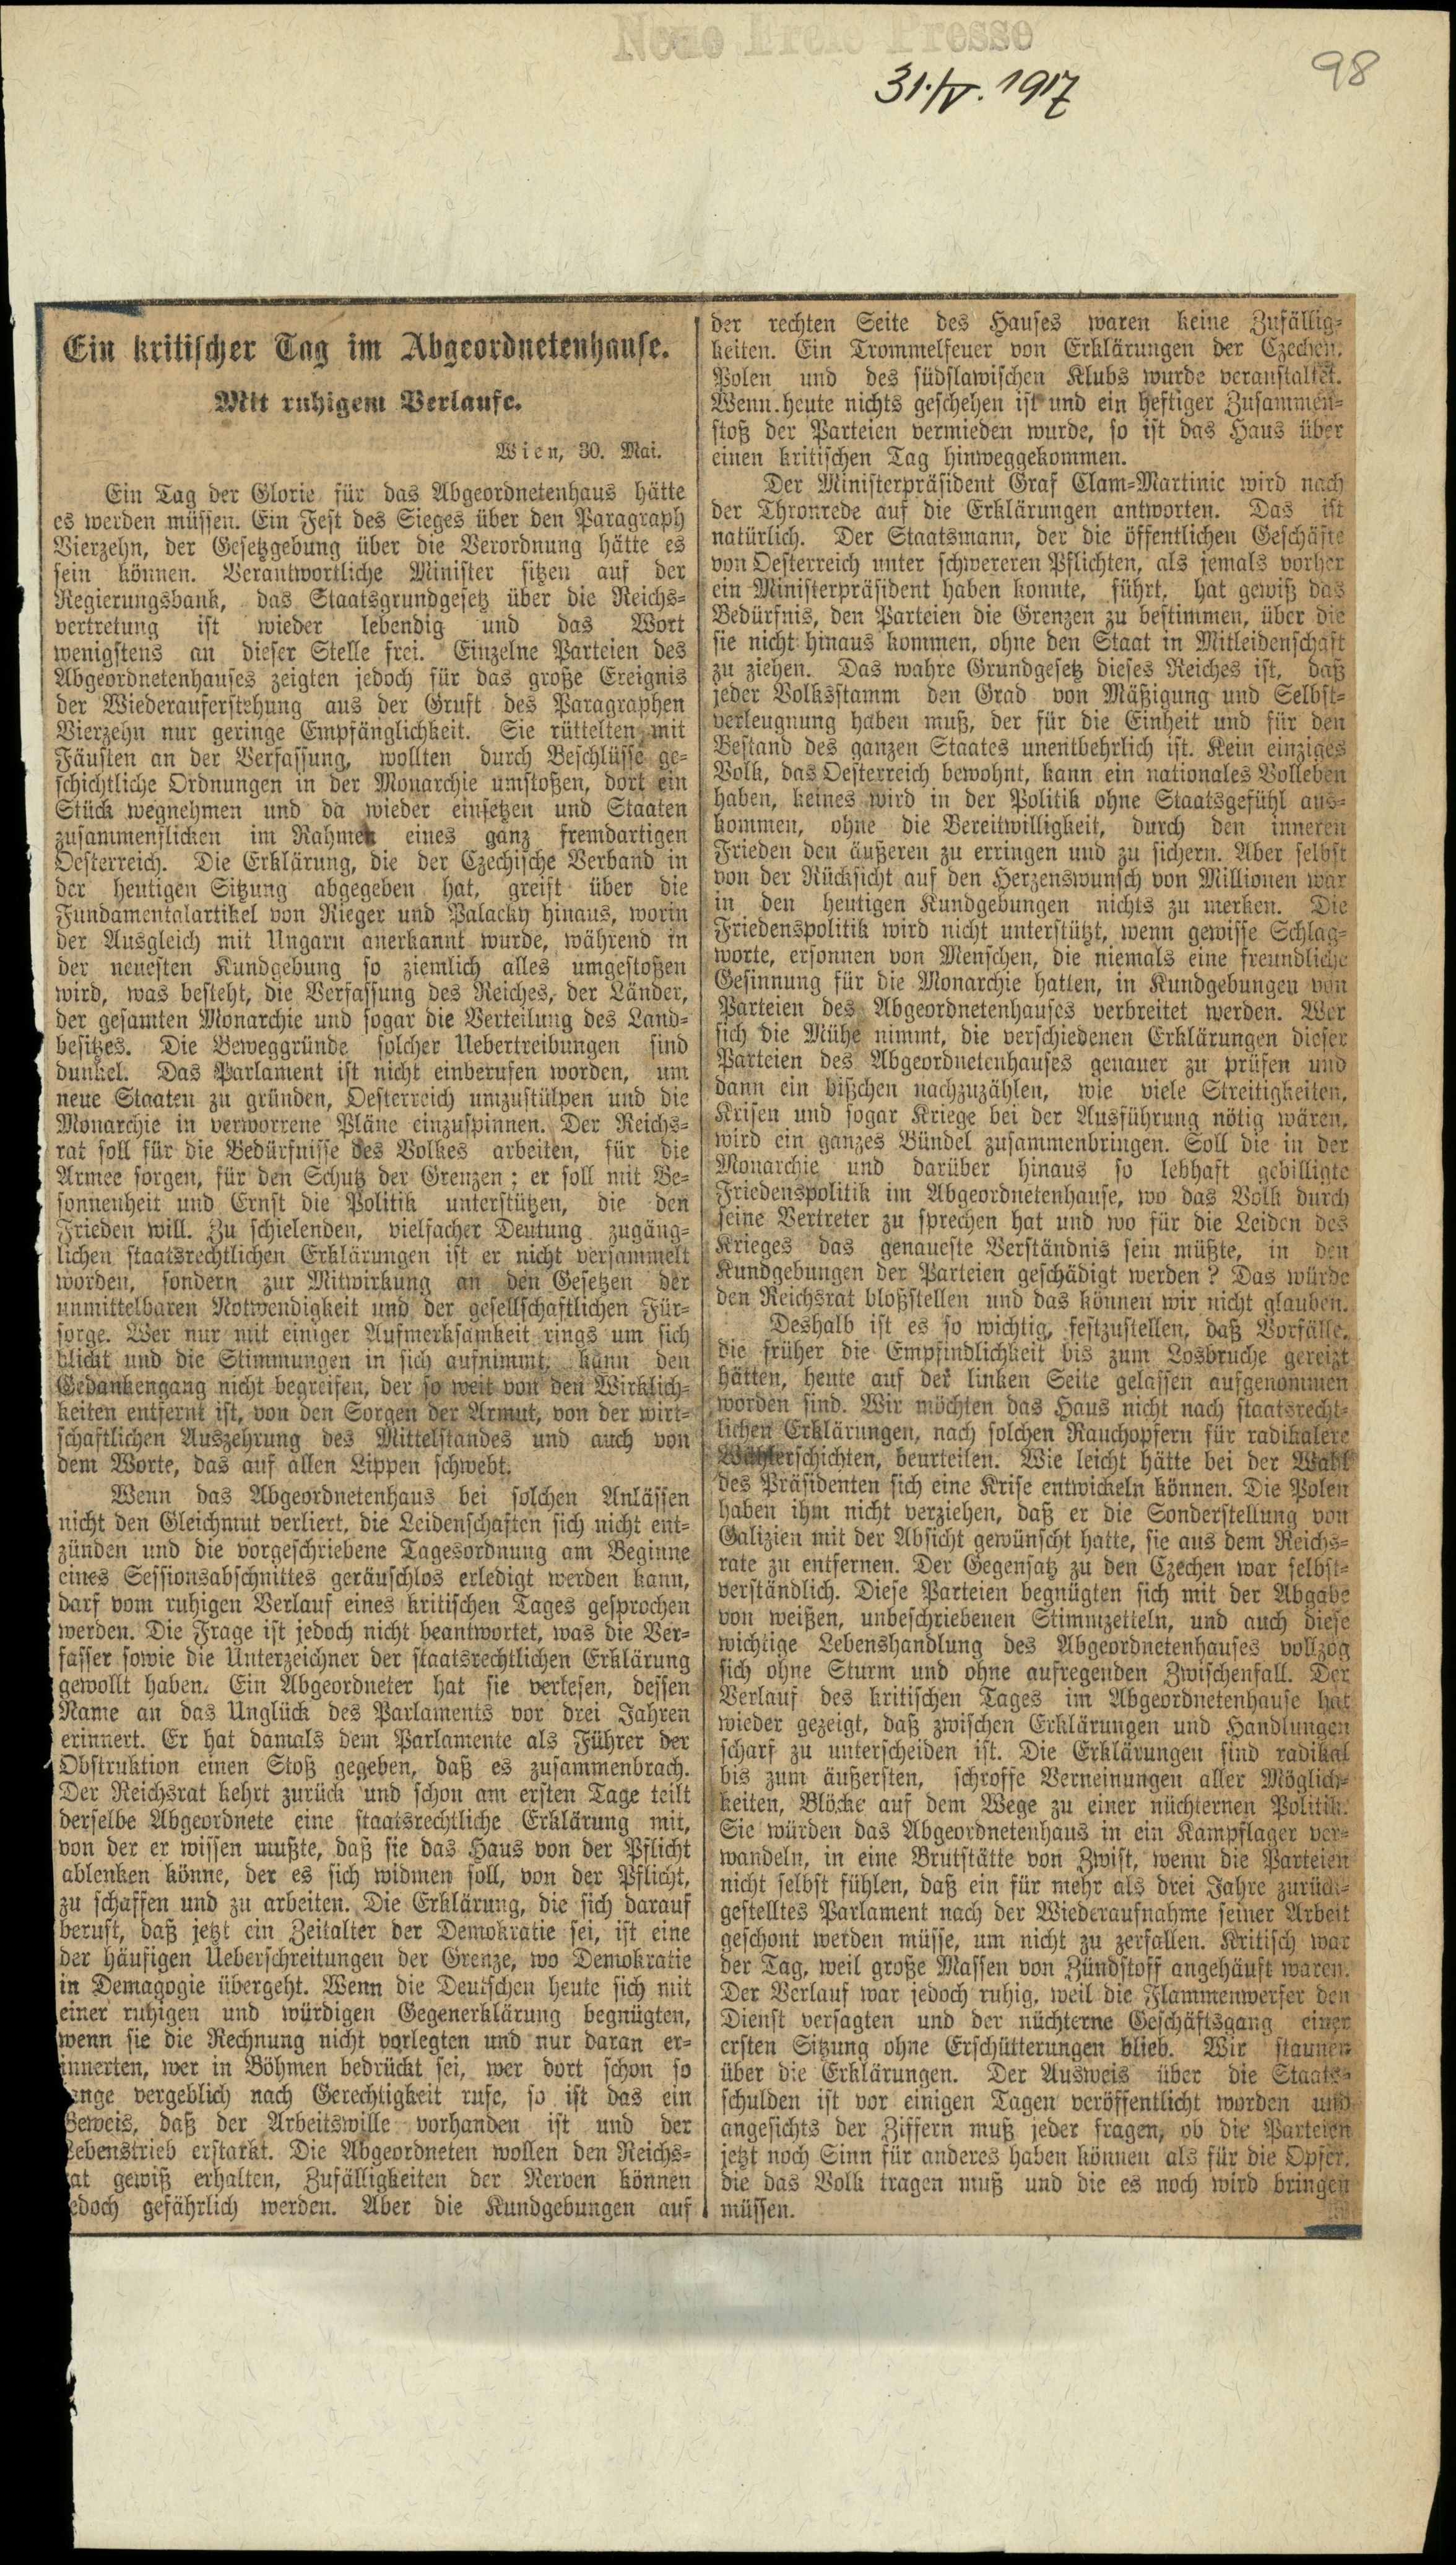 Neue Freie Presse
31./V. 1917
98
Ein kritischer Tag im Abgeordnetenhause.
Mit ruhigem Verlaufe.
Wien, 30. Mai.
Ein Tag der Glorie für das Abgeordnetenhaus hätte
es werden müssen. Ein Fest des Sieges über den Paragraph
Vierzehn, der Gesetzgebung über die Verordnung hätte es
sein können. Verantwortliche Minister sitzen auf der
Regierungsbank, das Staatsgrundgesetz über die Reichs-
vertretung ist wieder lebendig und das Wort
wenigstens an dieser Stelle frei. Einzelne Parteien des
Abgeordnetenhauses zeigten jedoch für das große Ereignis
der Wiederauferstehung aus der Gruft des Paragraphen
Vierzehn nur geringe Empfänglichkeit. Sie rüttelten mit
Fäusten an der Verfassung, wollten durch Beschlüsse ge-
schichtliche Ordnungen in der Monarchie umstoßen, dort ein
Stück wegnehmen und da wieder einsetzen und Staaten
zusammenflicken im Rahmen eines ganz fremdartigen
Oesterreich. Die Erklärung, die der Czechische Verband in
der heutigen Sitzung abgegeben hat, greift über die
Fundamentalartikel von Rieger und Palacky hinaus, worin
der Ausgleich mit Ungarn anerkannt wurde, während in
der neuesten Kundgebung so ziemlich alles umgestoßen
wird, was besteht, die Verfassung des Reiches, der Länder,
der gesamten Monarchie und sogar die Verteilung des Land-
besitzes. Die Beweggründe solcher Uebertreibungen sind
dunkel. Das Parlament ist nicht einberufen worden, um
neue Staaten zu gründen, Oesterreich umzustülpen und die
Monarchie in verworrene Pläne einzuspinnen. Der Reichs-
rat soll für die Bedürfnisse des Volkes arbeiten, für die
Armee sorgen, für den Schutz der Grenzen; er soll mit Be-
sonnenheit und Ernst die Politik unterstützen, die den
Frieden will. Zu schielenden, vielfacher Deutung zugäng-
lichen staatsrechtlichen Erklärungen ist er nicht versammelt
worden, sondern zur Mitwirkung an den Gesetzen der
unmittelbaren Notwendigkeit und der gesellschaftlichen Für-
sorge. Wer nur mit einiger Aufmerksamkeit rings um sich
blickt und die Stimmungen in sich aufnimmt, kann den
Gedankengang nicht begreifen, der so weit von den Wirklich-
keiten entfernt ist, von den Sorgen der Armut, von der wirt-
schaftlichen Auszehrung des Mittelstandes und auch von
dem Worte, das auf allen Lippen schwebt.
Wenn das Abgeordnetenhaus bei solchen Anlässen
nicht den Gleichmut verliert, die Leidenschaften sich nicht ent-
zünden und die vorgeschriebene Tagesordnung am Beginne
eines Sessionsabschnittes geräuschlos erledigt werden kann,
darf vom ruhigen Verlauf eines kritischen Tages gesprochen
werden. Die Frage ist jedoch nicht beantwortet, was die Ver-
fasser sowie die Unterzeichner der staatsrechtlichen Erklärung
gewollt haben. Ein Abgeordneter hat sie verlesen, dessen
Name an das Unglück des Parlaments vor drei Jahren
erinnert. Er hat damals dem Parlamente als Führer der
Obstruktion einen Stoß gegeben, daß es zusammenbrach.
Der Reichsrat kehrt zurück und schon am ersten Tage teilt
derselbe Abgeordnete eine staatsrechtliche Erklärung mit,
von der er wissen mußte, daß sie das Haus von der Pflicht
ablenken könne, der es sich widmen soll, von der Pflicht,
zu schaffen und zu arbeiten. Die Erklärung, die sich darauf
beruft, daß jetzt ein Zeitalter der Demokratie sei, ist eine
der häufigen Ueberschreitungen der Grenze, wo Demokratie
in Demagogie übergeht. Wenn die Deutschen heute sich mit
einer ruhigen und würdigen Gegenerklärung begnügten,
wenn sie die Rechnung nicht vorlegten und nur daran er-
innerten, wer in Böhmen bedrückt sei, wer dort schon so
ange vergeblich nach Gerechtigkeit rufe, so ist das ein
Beweis, daß der Arbeitswille vorhanden ist und der
Lebenstrieb erstarkt. Die Abgeordneten wollen den Reichs-
rat gewiß erhalten, Zufälligkeiten der Nerven können
edoch gefährlich werden. Aber die Kundgebungen auf
der rechten Seite des Hauses waren keine Zufällig-
keiten. Ein Trommelfeuer von Erklärungen der Czechen,
Polen und des südslawischen Klubs wurde veranstaltet.
Wenn heute nichts geschehen ist und ein heftiger Zusammen-
stoß der Parteien vermieden wurde, so ist das Haus über
einen kritischen Tag hinweggekommen.
Der Ministerpräsident Graf Clam-Martinic wird nach
der Thronrede auf die Erklärungen antworten. Das ist
natürlich. Der Staatsmann, der die öffentlichen Geschäfte
von Oesterreich unter schwereren Pflichten, als jemals vorher
ein Ministerpräsident haben konnte, führt, hat gewiß das
Bedürfnis, den Parteien die Grenzen zu bestimmen, über die
sie nicht hinaus kommen, ohne den Staat in Mitleidenschaft
zu ziehen. Das wahre Grundgesetz dieses Reiches ist, daß
jeder Volksstamm den Grad von Mäßigung und Selbst-
verleugnung haben muß, der für die Einheit und für den
Bestand des ganzen Staates unentbehrlich ist. Kein einziges
Volk, das Oesterreich bewohnt, kann ein nationales Volleben
haben, keines wird in der Politik ohne Staatsgefühl aus-
kommen, ohne die Bereitwilligkeit, durch den inneren
Frieden den äußeren zu erringen und zu sichern. Aber selbst
von der Rücksicht auf den Herzenswunsch von Millionen war
in den heutigen Kundgebungen nichts zu merken. Die
Friedenspolitik wird nicht unterstützt, wenn gewisse Schlag-
worte, ersonnen von Menschen, die niemals eine freundliche
Gesinnung für die Monarchie hatten, in Kundgebungen von
Parteien des Abgeordnetenhauses verbreitet werden. Wer
sich die Mühe nimmt, die verschiedenen Erklärungen dieser
Parteien des Abgeordnetenhauses genauer zu prüfen und
dann ein bißchen nachzuzählen, wie viele Streitigkeiten,
Krisen und sogar Kriege bei der Ausführung nötig wären,
wird ein ganzes Bündel zusammenbringen. Soll die in der
Monarchie und darüber hinaus so lebhaft gebilligte
Friedenspolitik im Abgeordnetenhause, wo das Volk durch
seine Vertreter zu sprechen hat und wo für die Leiden des
Krieges das genaueste Verständnis sein müßte, in den
Kundgebungen der Parteien geschädigt werden? Das würde
den Reichsrat bloßstellen und das können wir nicht glauben.
Deshalb ist es so wichtig, festzustellen, daß Vorfälle,
die früher die Empfindlichkeit bis zum Losbruche gereizt
hätten, heute auf der linken Seite gelassen aufgenommen
worden sind. Wir möchten das Haus nicht nach staatsrecht-
lichen Erklärungen, nach solchen Rauchopfern für radikalere
Wählerschichten, beurteilen. Wie leicht hätte bei der Wahl
des Präsidenten sich eine Krise entwickeln können. Die Polen
haben ihm nicht verziehen, daß er die Sonderstellung von
Galizien mit der Absicht gewünscht hatte, sie aus dem Reichs-
rate zu entfernen. Der Gegensatz zu den Czechen war selbst-
verständlich. Diese Parteien begnügten sich mit der Abgabe
von weißen, unbeschriebenen Stimmzetteln, und auch diese
wichtige Lebenshandlung des Abgeordnetenhauses vollzog
sich ohne Sturm und ohne aufregenden Zwischenfall. Der
Verlauf des kritischen Tages im Abgeordnetenhause hat
wieder gezeigt, daß zwischen Erklärungen und Handlungen
scharf zu unterscheiden ist. Die Erklärungen sind radikal
bis zum äußersten, schroffe Verneinungen aller Möglich-
keiten, Blöcke auf dem Wege zu einer nüchternen Politik.
Sie würden das Abgeordnetenhaus in ein Kampflager ver-
wandeln, in eine Brutstätte von Zwist, wenn die Parteien
nicht selbst fühlen, daß ein für mehr als drei Jahre zurück-
gestelltes Parlament nach der Wiederaufnahme seiner Arbeit
geschont werden müsse, um nicht zu zerfallen. Kritisch war
der Tag, weil große Massen von Zündstoff angehäuft waren.
Der Verlauf war jedoch ruhig, weil die Flammenwerfer den
Dienst versagten und der nüchterne Geschäftsgang einer
ersten Sitzung ohne Erschütterungen blieb. Wir staunen
über die Erklärungen. Der Ausweis über die Staats-
schulden ist vor einigen Tagen veröffentlicht worden und
angesichts der Ziffern muß jeder fragen, ob die Parteien
jetzt noch Sinn für anderes haben können als für die Opfer,
die das Volk tragen muß und die es noch wird bringen
müssen.